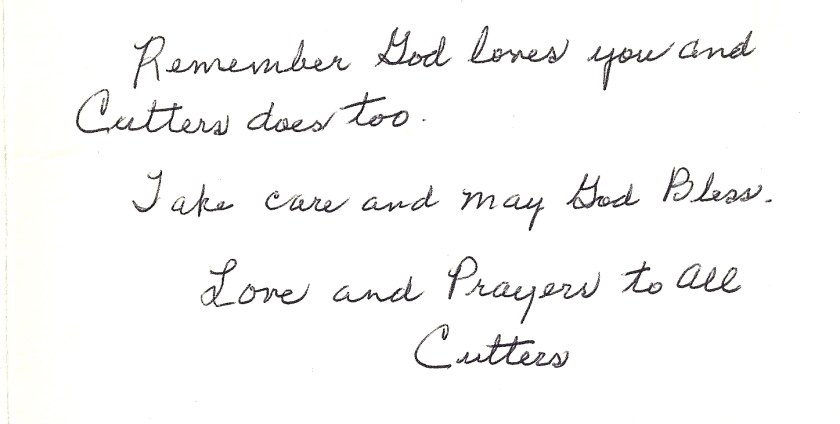 Remember God loves you and
Cutters does too.
Take care and may God Bless.
Love and Prayers to All
Cutters